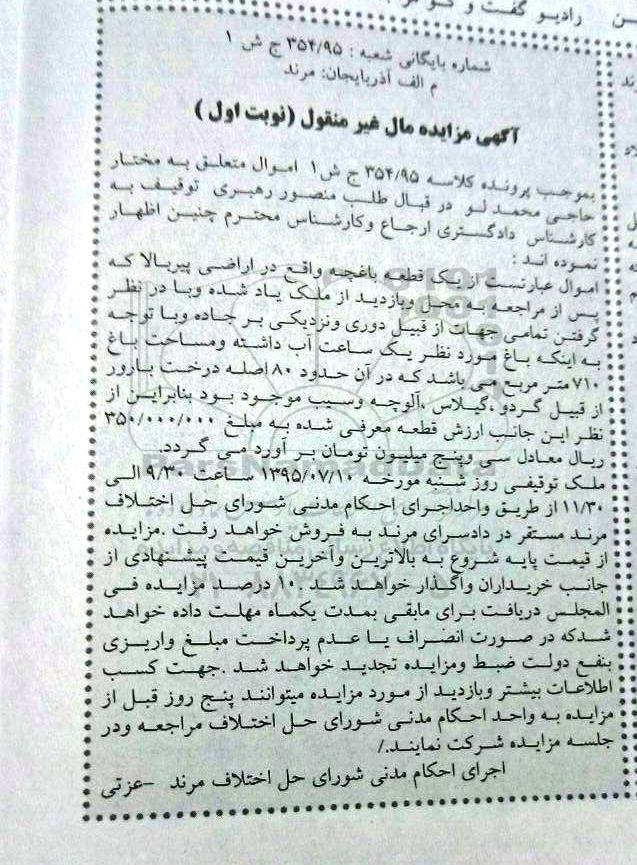 رادیو گفت و گو
شماره بایگانی شعبه : ۳۵۴/۹۵ ج ش ۱
م الف آذربایجان: مرند
آگهی مزایده مال غیر منقول (نوبت اول )
بموجب پرونده کلاسه ۳۵۴/۹۵ ج ش۱ اموال متعلق به مختار
حاجی محمد لو در قبال طلب منصور رهبری توقیف به
کارشناس دادگستری ارجاع وکارشناس محترم چنین اظهار
نموده اند :
اموال عبارتست از یک قطعه باغچه واقع در اراضی پیربالا که
پس از مراجعه به محل وبازدید از ملک یاد شده وبا در نظر
گرفتن تمامی جهات از قبیل دوری ونزدیکی بر جاده وبا توجه
به اینکه باغ مورد نظر یک ساعت آب داشته ومساحت باغ
۷۱۰ متر مربع می باشد که در آن حدود ۸۰ اصله درخت بارور
از قبیل گردو ،گیلاس ،آلوچه وسیب موجود بود بنابراین از
نظر این جانب ارزش قطعه معرفی شده به مبلغ ۳۵۰/۰۰۰/۰۰۰
ریال معادل سی وپنج میلیون تومان بر آورد می گردد.
ملک توقیفی روز شنبه مورخه ۱۳۹۵/۰۷/۱۰ ساعت ۹/۳۰ الی
۱۱/۳۰ از طریق واحداجرای احکام مدنی شورای حل اختلاف
مرند مستقر در دادسرای مرند به فروش خواهد رفت .مزایده
از قیمت پایه شروع به بالاترین وآخرین قیمت پیشنهادی از
جانب خریداران واگذار خواهد شد .۱۰ درصد مزایده فی
المجلس دریافت برای مابقی بمدت یکماه مهلت داده خواهد
شدکه در صورت انصراف یا عدم پرداخت مبلغ واریزی
بنفع دولت ضبط ومزایده تجدید خواهد شد .جهت کسب
اطلاعات بیشتر وبازدید از مورد مزایده میتوانند پنج روز قبل از
مزایده به واحد احکام مدنی شورای حل اختلاف مراجعه ودر
جلسه مزایده شرکت نمایند./
اجرای احکام مدنی شورای حل اختلاف مرند –عزتی
ParsNamadData